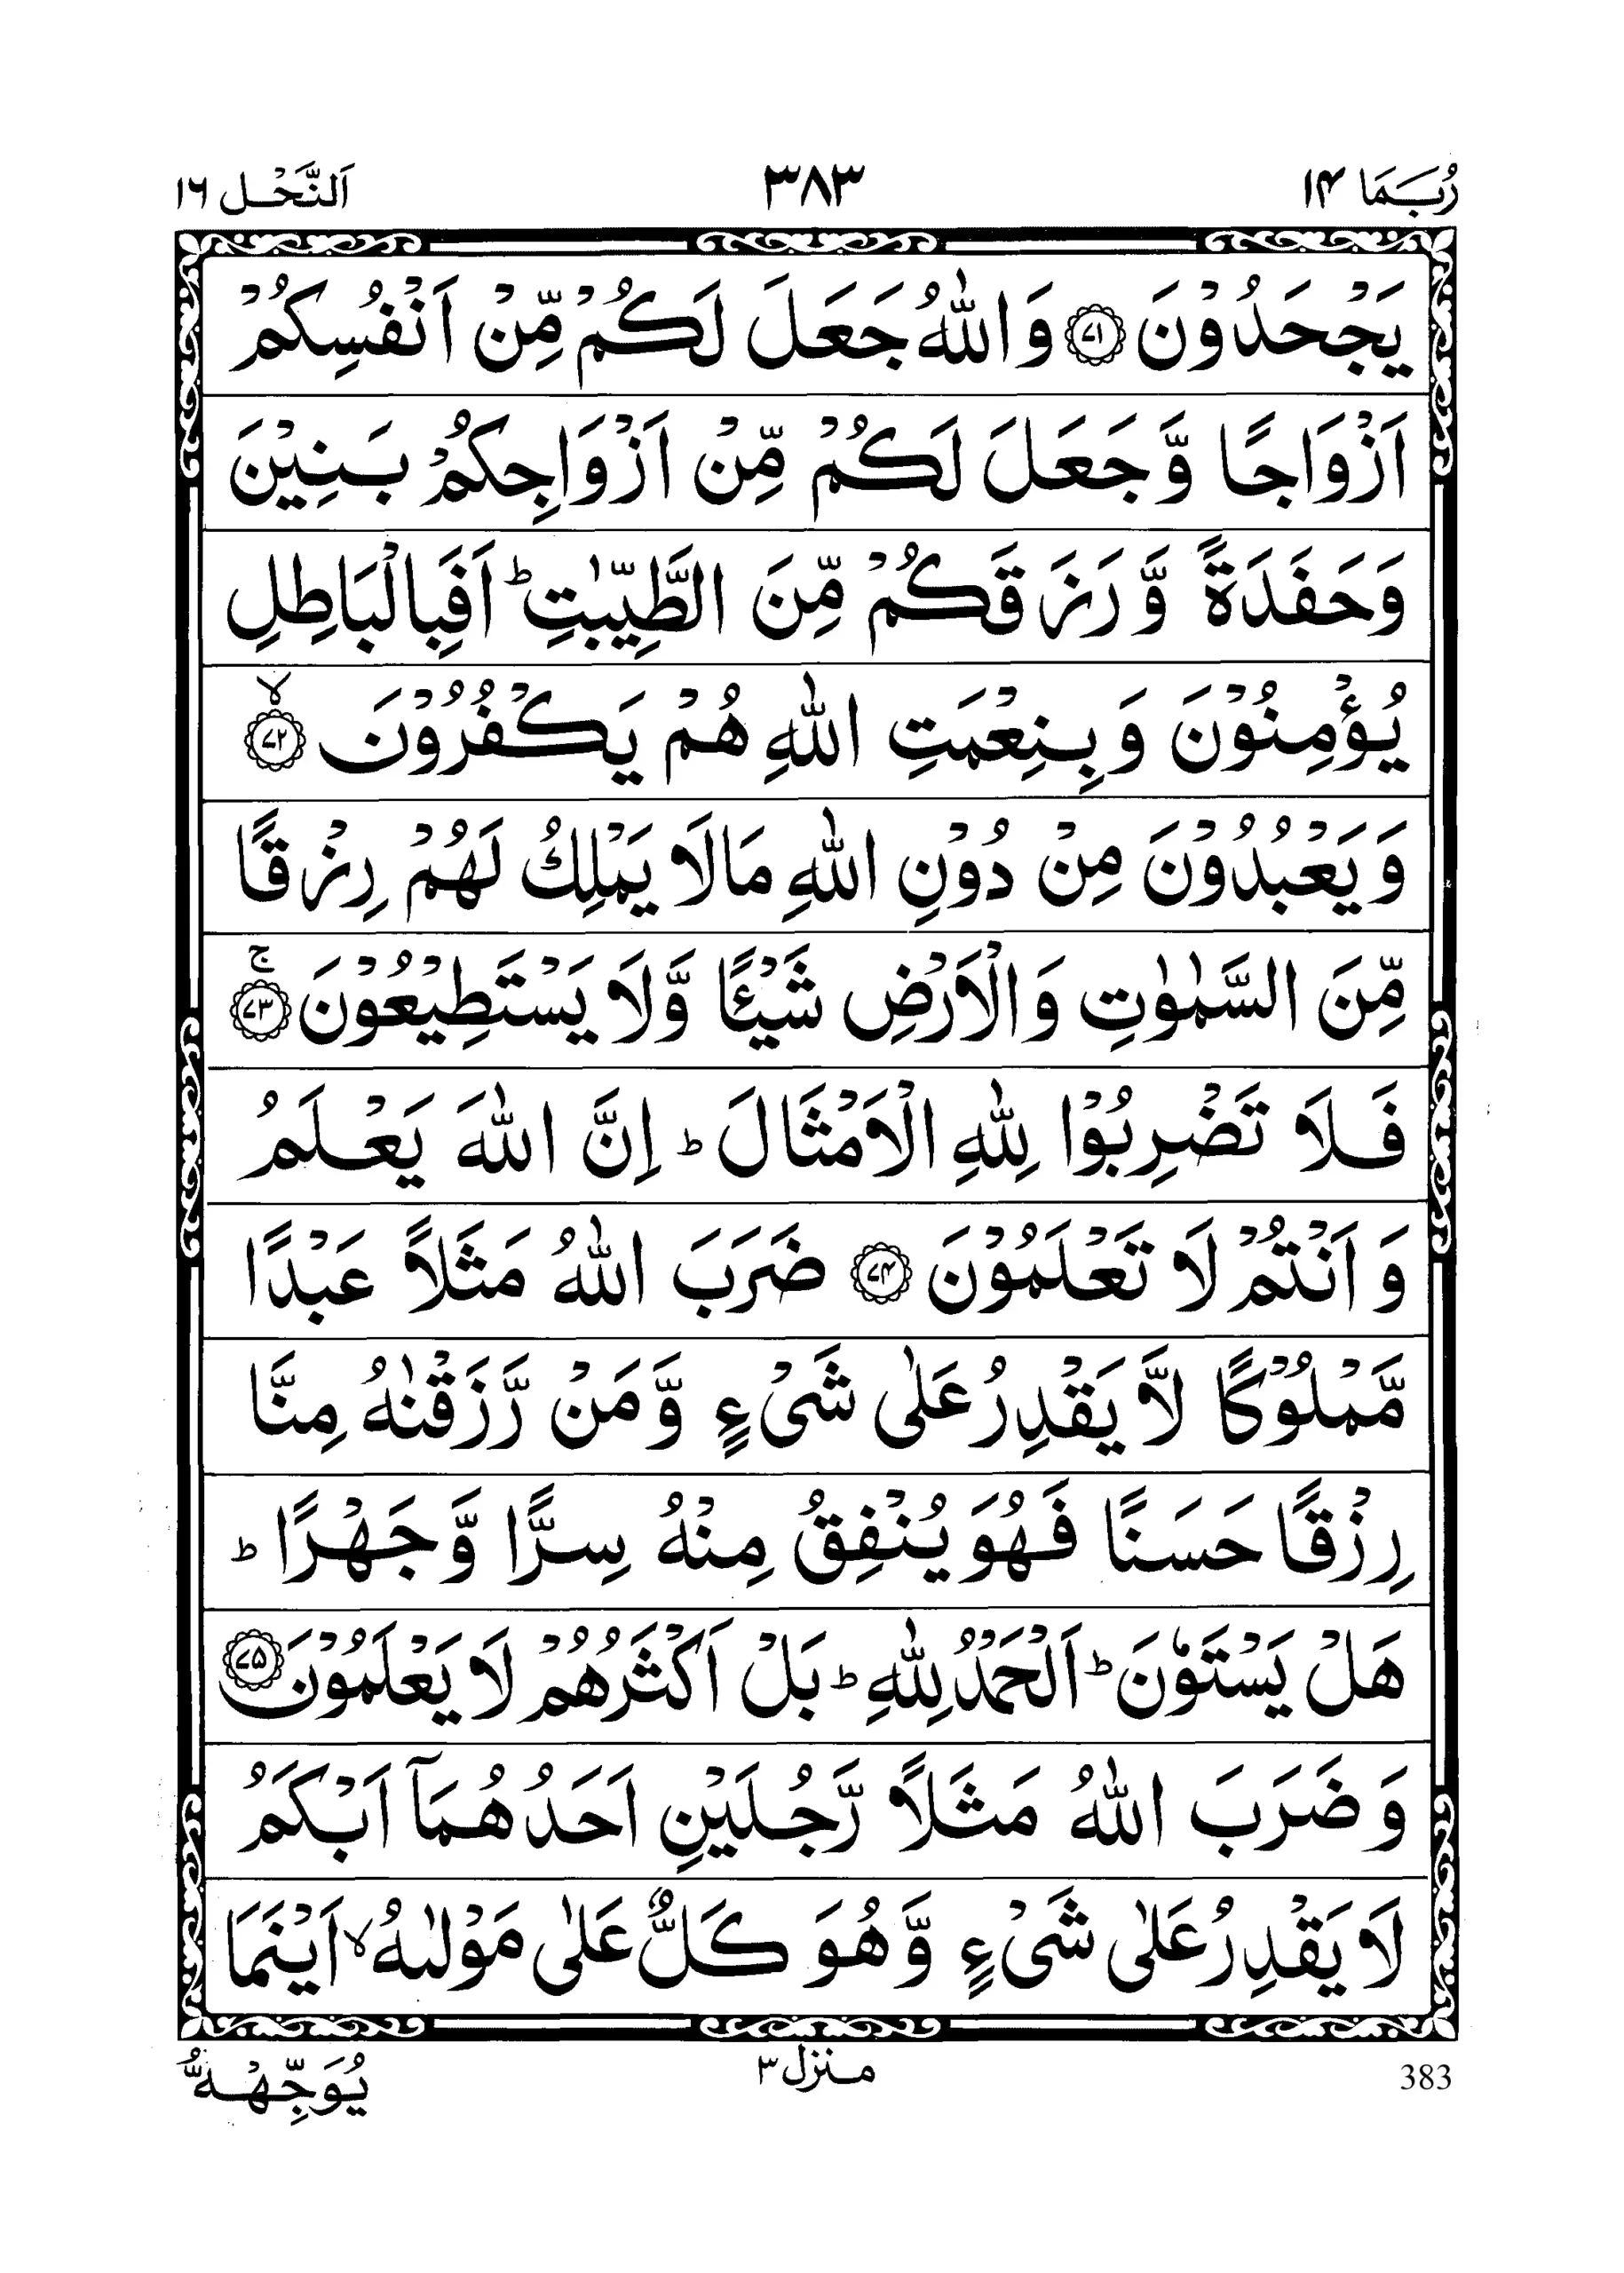 رُبَمَا ١٤ ٣٨٣ اَلنَّحْل ١٦
يَجْحَدُوْنَ ﴿٧١﴾ وَاللّٰهُ جَعَلَ لَكُمْ مِّنْ اَنْفُسِكُمْ
اَزْوَاجًا وَّجَعَلَ لَكُمْ مِّنْ اَزْوَاجِكُمْ بَنِيْنَ
وَحَفَدَةً وَّرَزَقَكُمْ مِّنَ الطَّيِّبٰتِ ؕ اَفَبِالْبَاطِلِ
يُؤْمِنُوْنَ وَبِنِعْمَتِ اللّٰهِ هُمْ يَكْفُرُوْنَ ۙ﴿٧٢﴾
وَيَعْبُدُوْنَ مِنْ دُوْنِ اللّٰهِ مَالَا يَمْلِكُ لَهُمْ رِزْقًا
مِّنَ السَّمٰوٰتِ وَالْاَرْضِ شَيْئًا وَّلَا يَسْتَطِيْعُوْنَ ۚ﴿٧٣﴾
فَلَا تَضْرِبُوْا لِلّٰهِ الْاَمْثَالَ ؕ اِنَّ اللّٰهَ يَعْلَمُ
وَاَنْتُمْ لَا تَعْلَمُوْنَ ﴿٧٤﴾ ضَرَبَ اللّٰهُ مَثَلًا عَبْدًا
مَّمْلُوْكًا لَّا يَقْدِرُ عَلٰى شَىْءٍ وَّمَنْ رَّزَقْنٰهُ مِنَّا
رِزْقًا حَسَنًا فَهُوَ يُنْفِقُ مِنْهُ سِرًّا وَّجَهْرًا ؕ
هَلْ يَسْتَوٗنَ ؕ اَلْحَمْدُ لِلّٰهِ ؕ بَلْ اَكْثَرُهُمْ لَا يَعْلَمُوْنَ ﴿٧٥﴾
وَضَرَبَ اللّٰهُ مَثَلًا رَّجُلَيْنِ اَحَدُهُمَاۤ اَبْكَمُ
لَا يَقْدِرُ عَلٰى شَىْءٍ وَّهُوَ كَلٌّ عَلٰى مَوْلٰىهُ ۙ اَيْنَمَا
يُوَجِّهْهُّ منزل ٣ 383